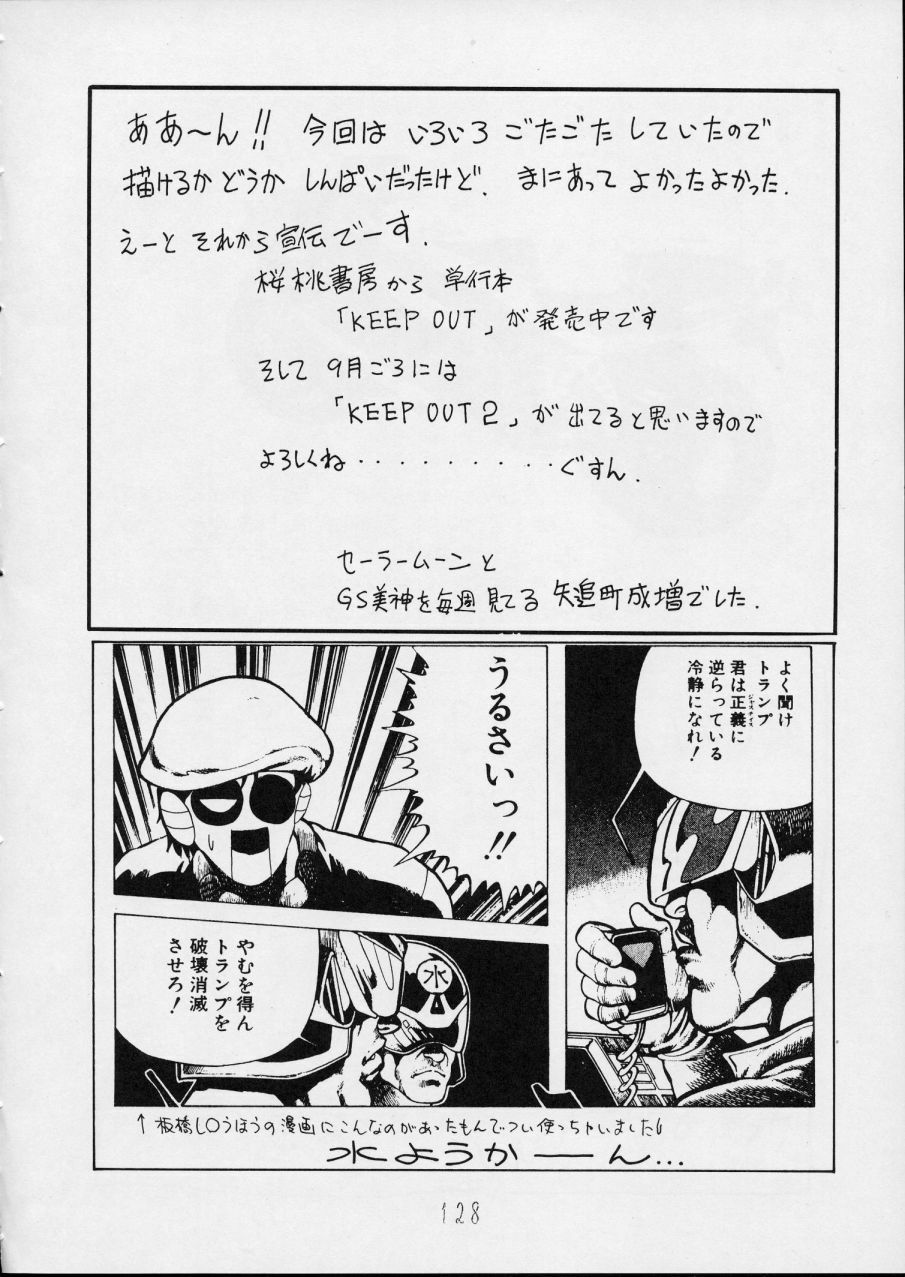 ああ～ん!! 今回は いろいろ ごたごた していたので
描けるか どうか しんぱいだったけど. まにあって よかったよかった.
えーと それから宣伝でーす.
桜桃書房から 単行本
「KEEP OUT」が発売中です
そして 9月ごろには
「KEEP OUT 2」が 出てると思いますので
よろしくね・・・・・・・・・ぐすん.
セーラームーンと
GS美神を毎週 見てる 矢追町成増でした.
よく聞け
トランプ
君は正義に
ジャスティス
逆らっている
冷静になれ!
うるさいっ!!
やむを得ん
トランプを
破壊消滅
させろ!
水
↑ 板橋し〇うほうの漫画にこんなのがあったもんでつい使っちゃいました
水ようかーん...
128